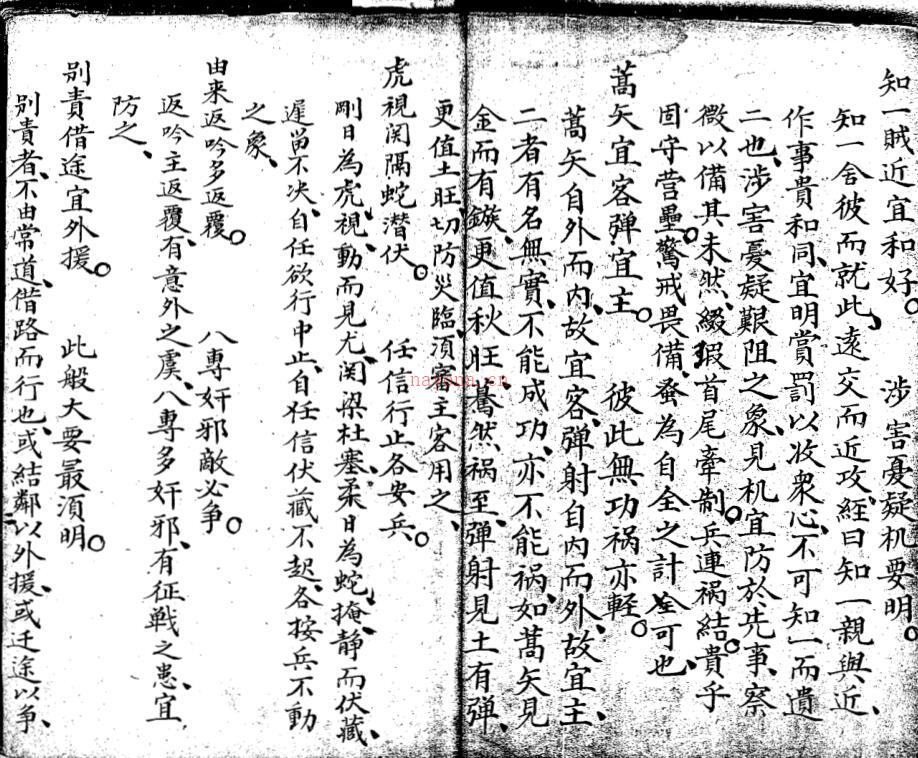 知一賊近宜和好。　涉害憂疑机要明。
知一舍彼而就此、遠交而近攻、経曰知一親與近、
作事貴和同、宜明賞罰以收衆心、不可知一而遺
二也、涉害憂疑艱阻之象、見机宜防於先事、察
微以備其未然、綴瑕首尾牽制。兵連禍結。貴乎
固守营壘。驚戒畏備、蚤為自全之計全可也、
蒿矢宜客弹宜主。　彼此無功祸亦輕。
蒿矢自外而内、故宜客、弹射自内而外、故宜主、
二者有名無實、不能成功、亦不能祸、如蒿矢見
金而有鏃、更值秋旺驀然祸至、弹射見土有弹、
更值土旺切防災臨、須審主客用之、
虎視関隔蛇潜伏。　任信行止各安兵。
剛日為虎視、動而見尤、関梁杜塞、柔日為蛇掩、静而伏藏、
遲留不决、自任欲行中止、自任信伏藏不起、各按兵不動
之象、
由来返吟多返覆。　八專奸邪敵必争。
返吟主返覆、有意外之虞、八專多奸邪、有征戦之患、宜
防之、
别責借途宜外援。　此般大要最須明。
别責者、不由常道、借路而行也、或結鄰以外援、或迂途以争、
nayuan.cn